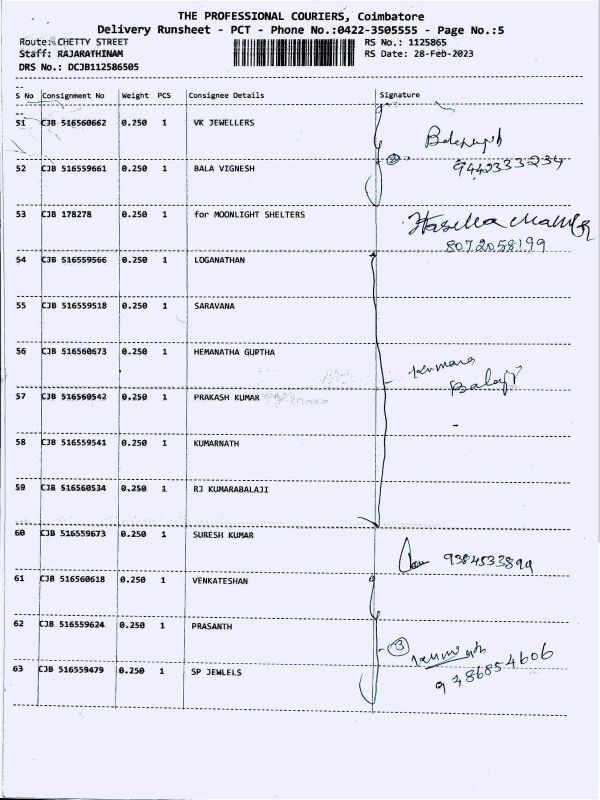 THE PROFESSIONAL COURIERS, Coimbatore
Delivery Runsheet - PCT - Phone No.:0422-3505555 - Page No.:5
Route: CHETTY STREET RS No.: 1125865
Staff: RAJARATHINAM RS Date: 28-Feb-2023
DRS No.: DCJB112586505
S No Consignment No Weight PCS Consignee Details Signature
51 CJB 516560662 0.250 1 VK JEWELLERS
52 CJB 516559661 0.250 1 BALA VIGNESH 9442333234
53 CJB 178278 0.250 1 for MOONLIGHT SHELTERS
8072058199
54 CJB 516559566 0.250 1 LOGANATHAN
55 CJB 516559518 0.250 1 SARAVANA
56 CJB 516560673 0.250 1 HEMANATHA GUPTHA
Kumara
57 CJB 516560542 0.250 1 PRAKASH KUMAR Balaji
58 CJB 516559541 0.250 1 KUMARNATH
59 CJB 516560534 0.250 1 RJ KUMARABALAJI
60 CJB 516559673 0.250 1 SURESH KUMAR
9384533899
61 CJB 516560618 0.250 1 VENKATESHAN
62 CJB 516559624 0.250 1 PRASANTH
3
63 CJB 516559479 0.250 1 SP JEWLELS